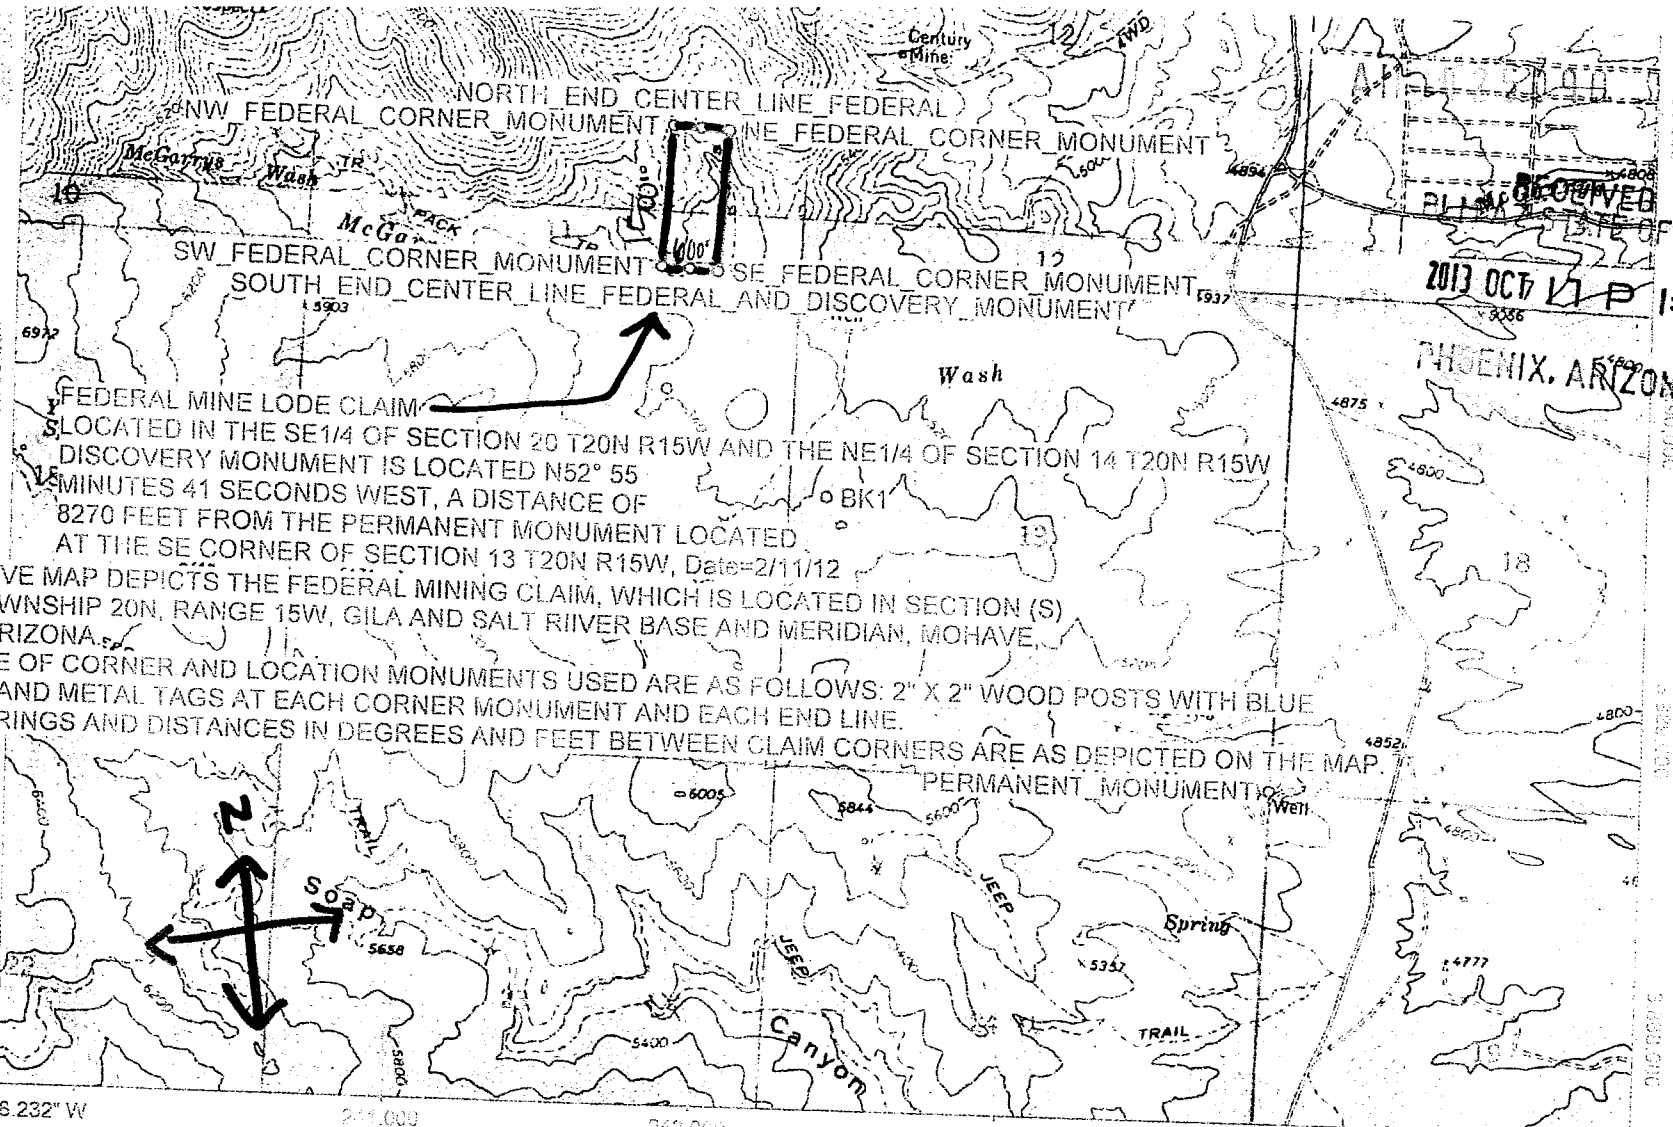 Century
Mine
12
4WD
NORTH_END_CENTER_LINE_FEDERAL
NW_FEDERAL_CORNER_MONUMENT
NE_FEDERAL_CORNER_MONUMENT
McGarrys
Wash
TR
10
4894
4808
RECEIVED
STATE OF
McGar
PACK
TR
600'
12
SW_FEDERAL_CORNER_MONUMENT
SE_FEDERAL_CORNER_MONUMENT
SOUTH_END_CENTER_LINE_FEDERAL_AND_DISCOVERY_MONUMENT
2013 OCT 17 P 1:
5903
6972
PHOENIX, ARIZON
Wash
4875
FEDERAL MINE LODE CLAIM
LOCATED IN THE SE1/4 OF SECTION 20 T20N R15W AND THE NE1/4 OF SECTION 14 T20N R15W
DISCOVERY MONUMENT IS LOCATED N52° 55
MINUTES 41 SECONDS WEST, A DISTANCE OF
8270 FEET FROM THE PERMANENT MONUMENT LOCATED
AT THE SE CORNER OF SECTION 13 T20N R15W, Date=2/11/12
4800
BK1
13
18
VE MAP DEPICTS THE FEDERAL MINING CLAIM, WHICH IS LOCATED IN SECTION (S)
WNSHIP 20N, RANGE 15W, GILA AND SALT RIIVER BASE AND MERIDIAN, MOHAVE,
RIZONA.
E OF CORNER AND LOCATION MONUMENTS USED ARE AS FOLLOWS: 2" X 2" WOOD POSTS WITH BLUE
AND METAL TAGS AT EACH CORNER MONUMENT AND EACH END LINE.
RINGS AND DISTANCES IN DEGREES AND FEET BETWEEN CLAIM CORNERS ARE AS DEPICTED ON THE MAP.
4800
4852
PERMANENT_MONUMENT
Well
6400
N
TRAIL
5800
6005
5600
5844
5600
4800
Soap
5658
JEEP
JEEP
Spring
5357
4777
6200
5400
5800
Canyon
TRAIL
19
6.232" W
241,000